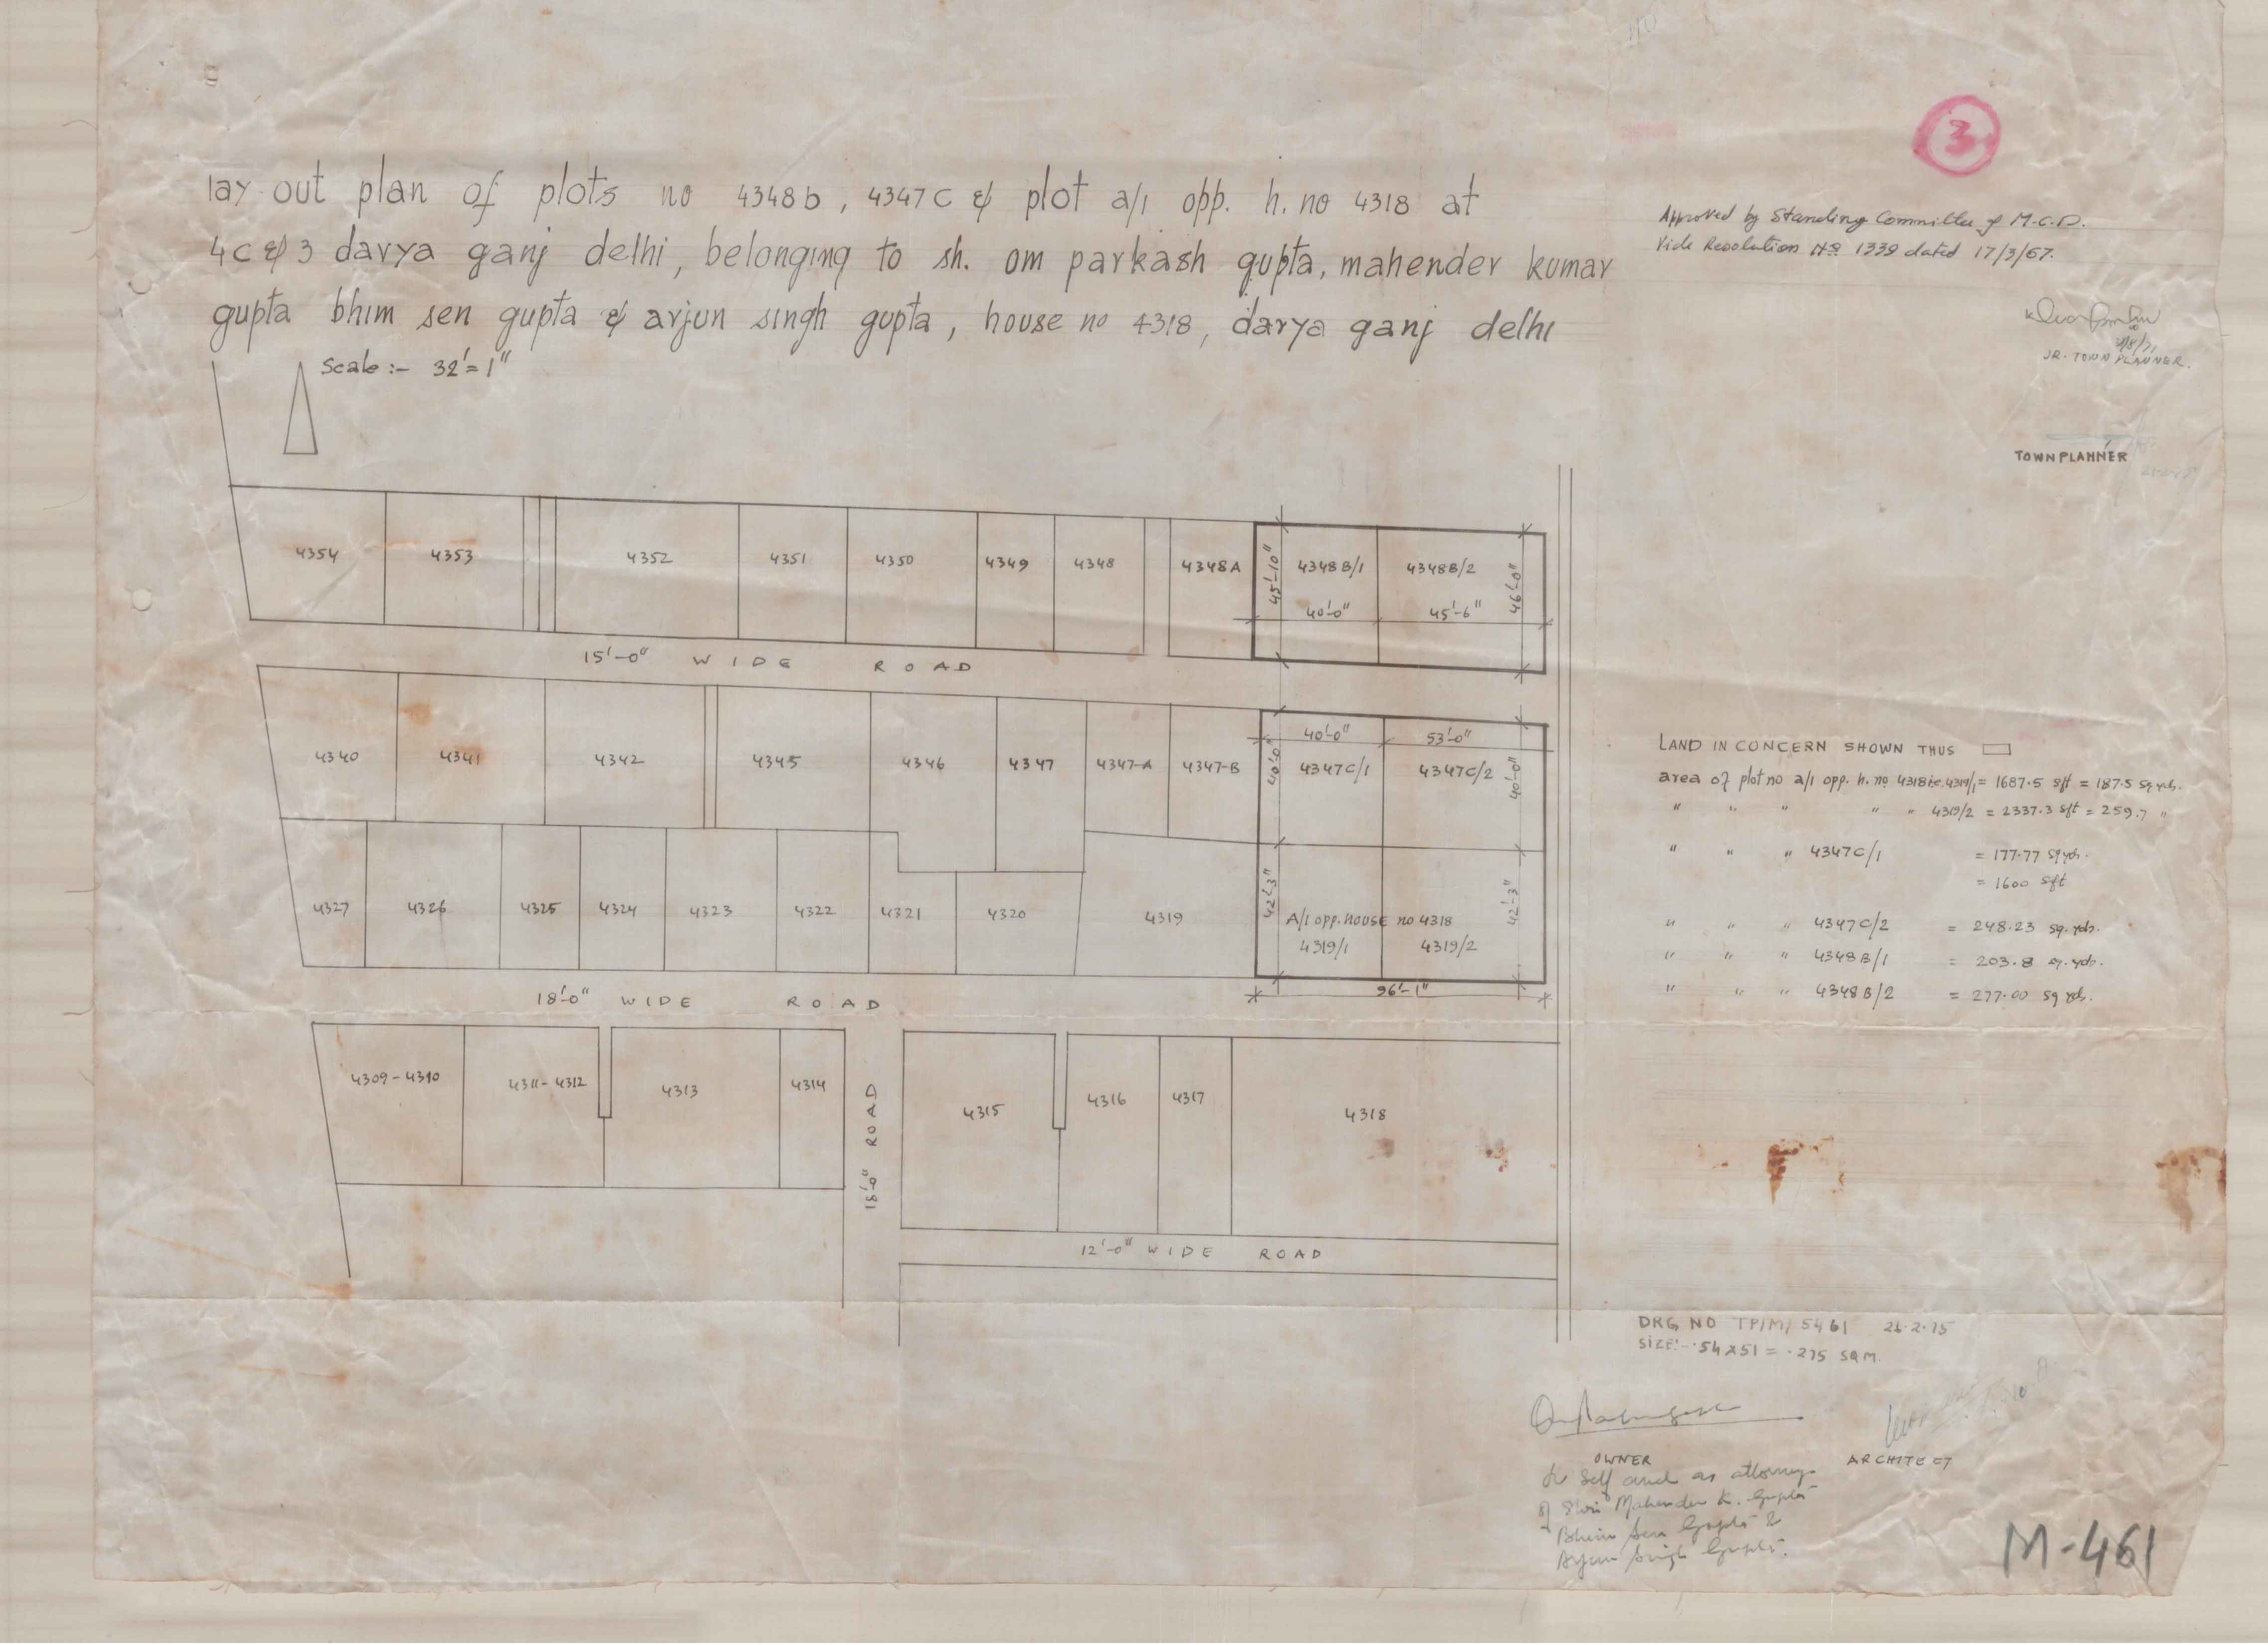 3
lay out plan of plots no 4348b, 4347c & plot a/1 opp. h. no 4318 at
4c & 3 darya ganj delhi, belonging to sh. om parkash gupta, mahender kumar
gupta bhim sen gupta & arjun singh gupta, house no 4318, darya ganj delhi
Scale :- 32'=1"
Approved by Standing Committee of M.C.D.
Vide Resolution No 1339 dated 17/3/67.
JR. TOWN PLANNER.
TOWN PLANNER
4354 4353 4352 4351 4350 4349 4348 4348A 45'-10" 4348B/1 4348B/2 46'-0"
40'-0" 45'-6"
15'-0" WIDE ROAD
40'-0" 53'-0"
4340 4341 4342 4345 4346 4347 4347-A 4347-B 40'-0" 4347C/1 4347C/2 40'-0"
4327 4326 4325 4324 4323 4322 4321 4320 4319 42'-3" A/1 opp. house no 4318 42'-3"
4319/1 4319/2
96'-1"
18'-0" WIDE ROAD
4309-4310 4311-4312 4313 4314 18'-0" ROAD 4315 4316 4317 4318
12'-0" WIDE ROAD
LAND IN CONCERN SHOWN THUS
area of plot no a/1 opp. h. no 4318 i.e. 4319/1 = 1687.5 sft = 187.5 sq yds.
" " " " " 4319/2 = 2337.3 sft = 259.7 "
" " " 4347C/1 = 177.77 sq yds.
= 1600 sft
" " " 4347C/2 = 248.23 sq. yds.
" " " 4348B/1 = 203.8 sq. yds.
" " " 4348B/2 = 277.00 sq yds.
DRG NO TP/M/5461 26.2.75
SIZE:- .54x51 = .275 SQM.
OWNER
for self and as attorney
of Shri Mahender K. Gupta
Bhim Sen Gupta &
Arjun Singh Gupta.
ARCHITECT
M-461